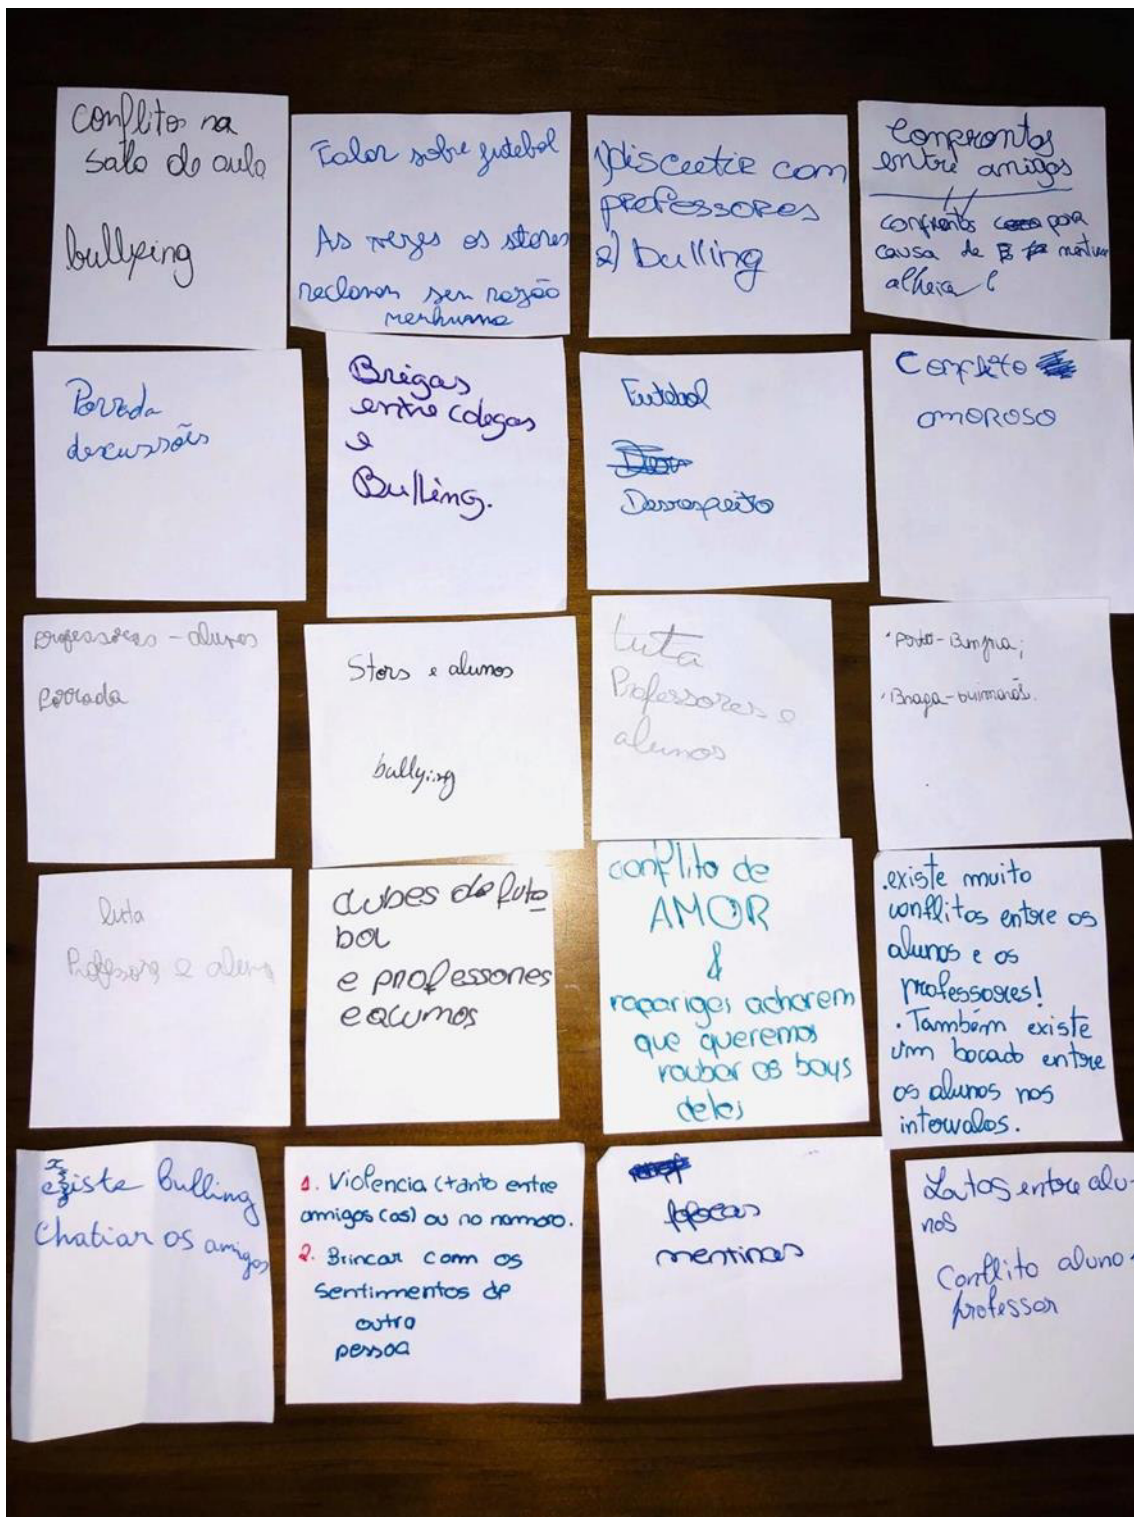 conflitos na
sala de aula
bullying
Falar sobre futebol
As vezes os stores
reclamam sem razão
nenhuma
1) discutir com
professores
2) bulling
Confrontos
entre amigos
confrontos por
causa de
alheia
Porrada
discussões
Brigas
entre colegas
e
Bulling.
Futebol
Desrespeito
Conflito
amoroso
professores - alunos
porrada
Stors e alunos
bullying
Luta
Professores e
alunos
• Porto-Benfica;
• Braga-Guimarães.
luta
Professora e aluno
clubes de fute
bol
e professores
e alunos
conflito de
AMOR
&
raparigas acharem
que queremos
roubar os boys
delas
.existe muito
conflitos entre os
alunos e os
professores!
. Também existe
um bocado entre
os alunos nos
intervalos.
existe bulling
Chatiar os amigos
1. Violencia (tanto entre
amigos (as) ou no namoro.
2. Brincar com os
sentimentos de
outra
pessoa
fofocas
mentiras
Lutas entre alu-
nos
Conflito aluno-
professor